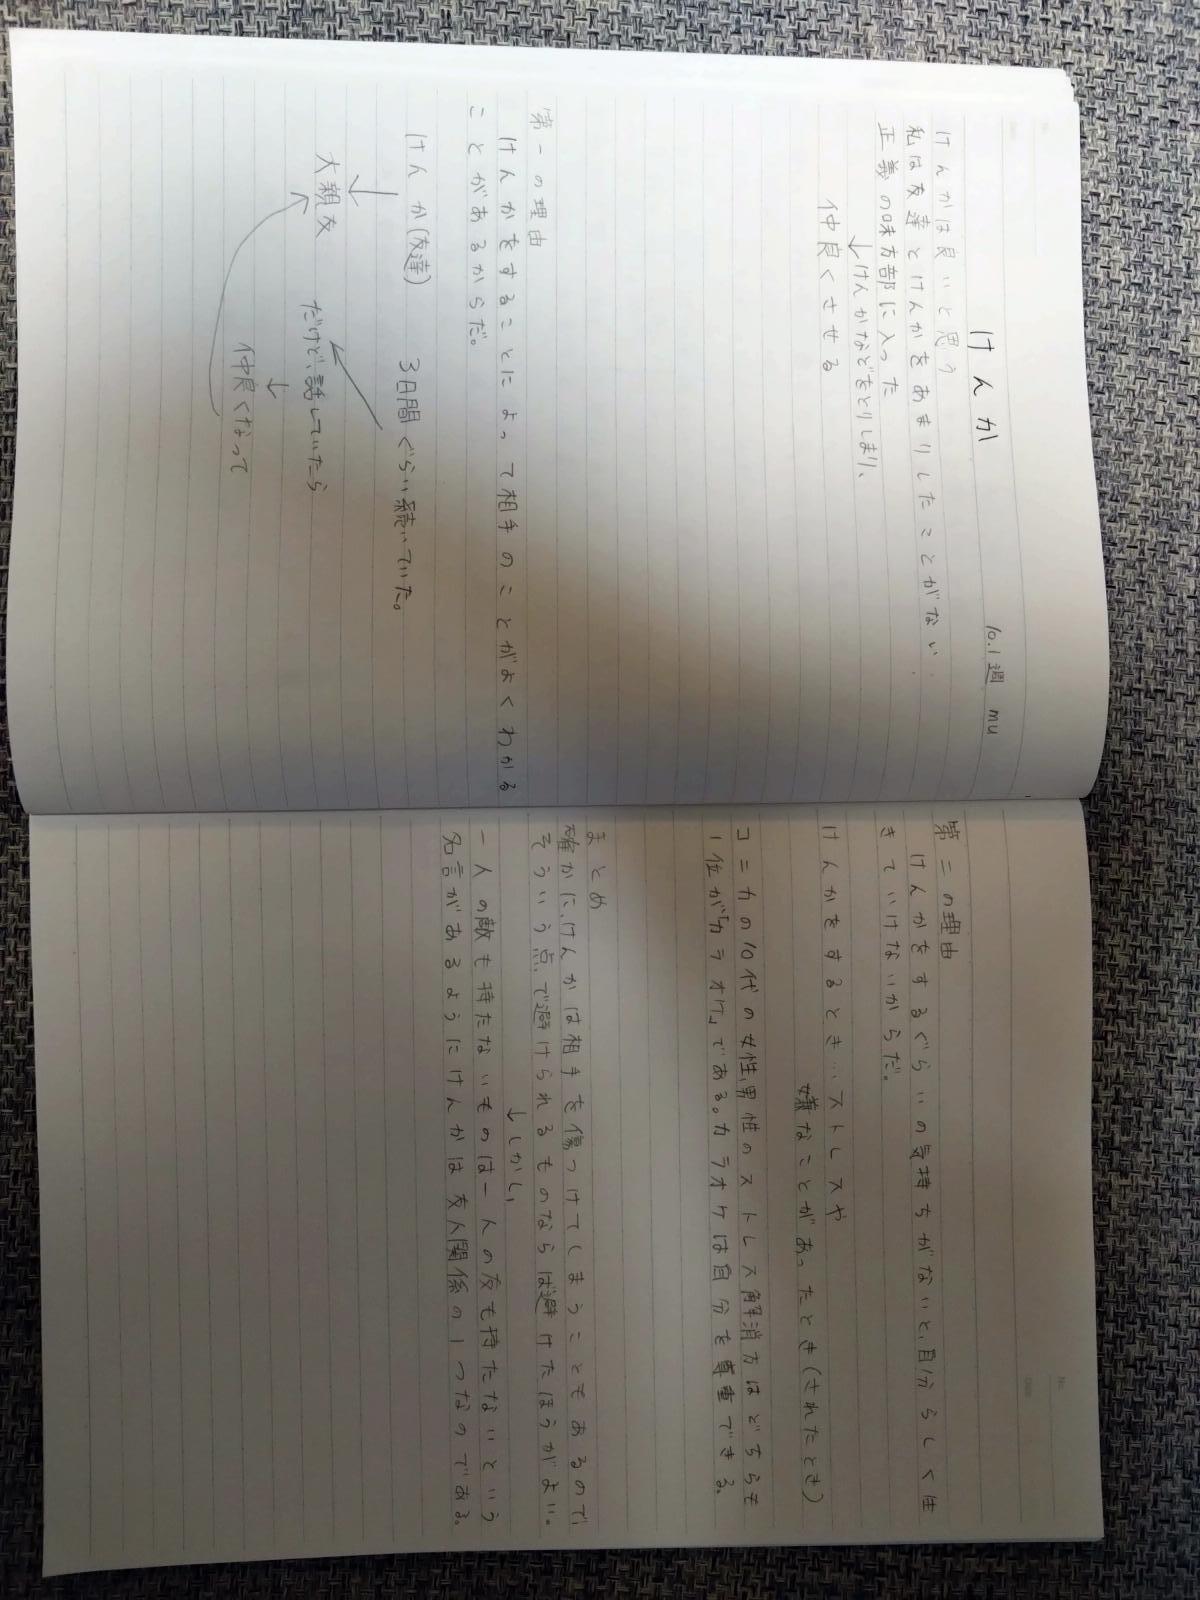 けんか
10.1週 mu
けんかは良いと思う
私は友達とけんかをあまりしたことがない
正義の味方部に入った
↓けんかなどをとりしまり、
仲良くさせる
第一の理由
けんかをすることによって相手のことがよくわかる
ことがあるからだ。
けんか(友達) 3日間ぐらい続いていた。
↓
大親友 だけど、話していたら
↓
仲良くなって
第二の理由
けんかをするぐらいの気持ちがないと、自分らしく生
きていけないからだ。
けんかをするとき…ストレスや
嫌なことがあったとき(されたとき)
コニカの10代の女性、男性のストレス解消方はどちらも
1位が「カラオケ」である。カラオケは自分を尊重できる。
まとめ
確かに、けんかは相手を傷つけてしまうこともあるので
そういう点で避けられるものならば避けたほうがよい。
↓しかし、
一人の敵も持たないものは一人の友も持たないという
名言があるようにけんかは友人関係の1つなのである。